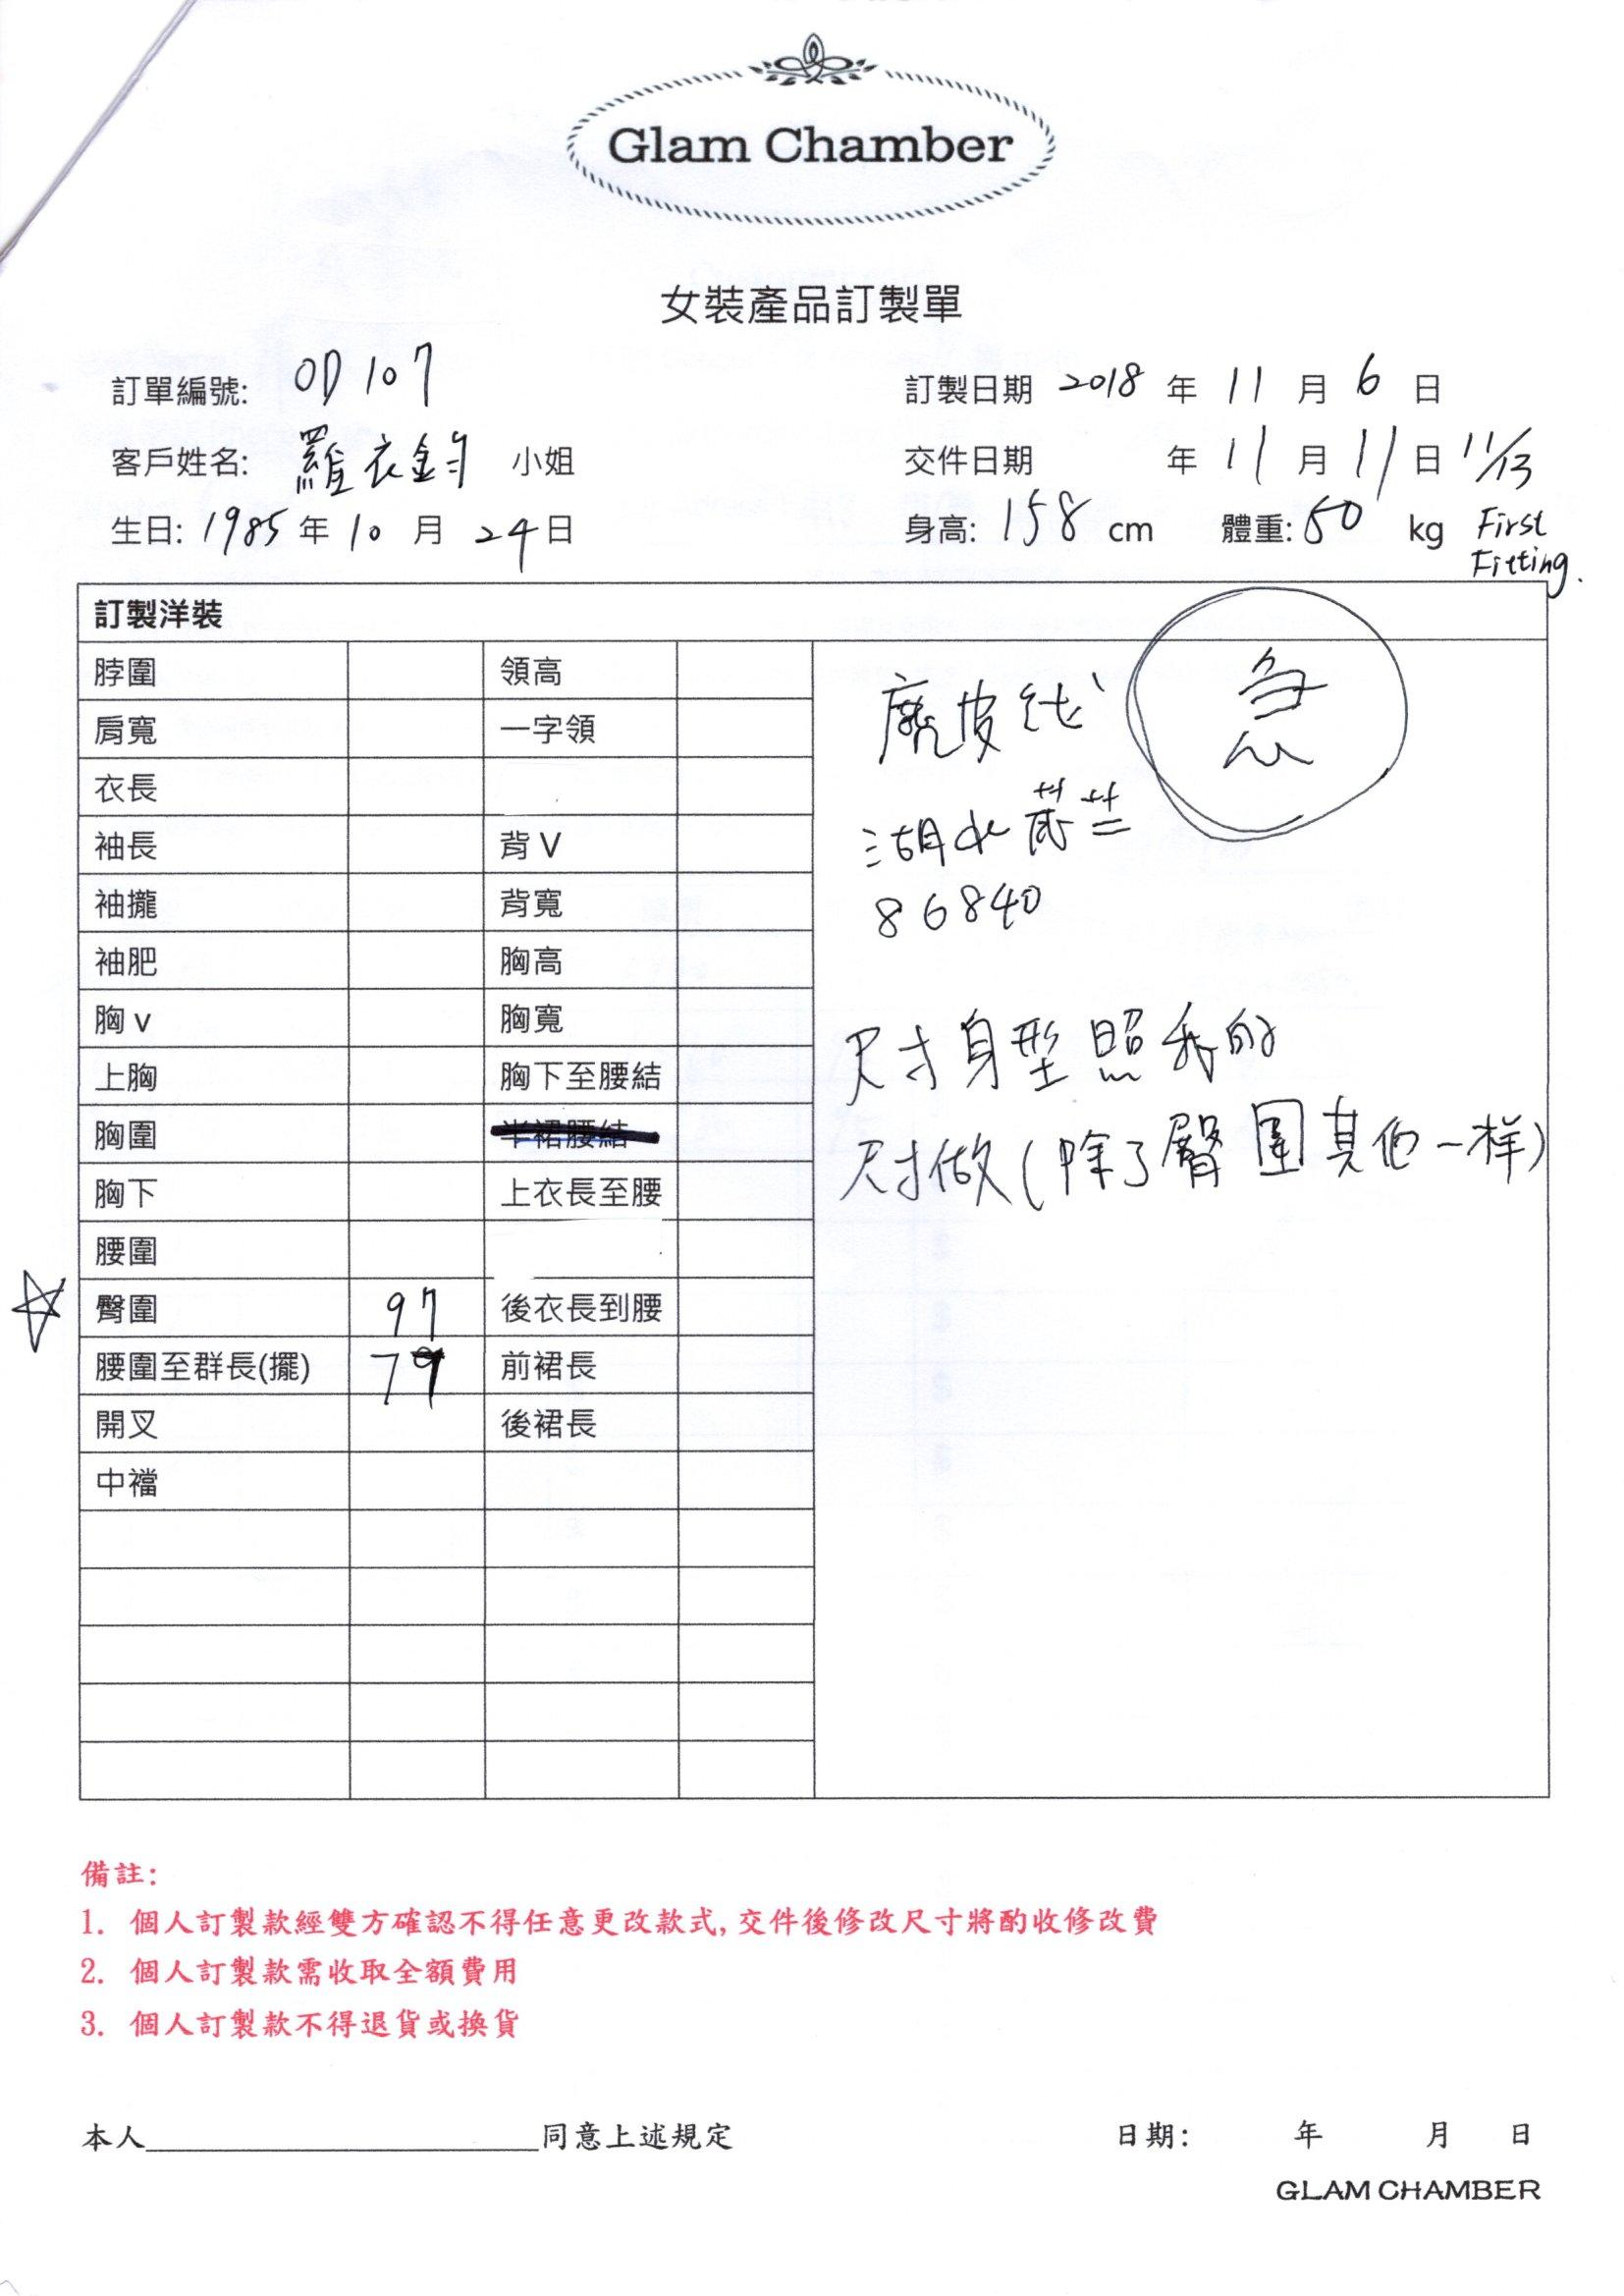 Glam Chamber
女裝產品訂製單
訂單編號: OD107
訂製日期 2018 年 11 月 6 日
客戶姓名: 羅衣鈞 小姐
交件日期 年 11 月 11 日 11/13
生日: 1985 年 10 月 24 日
身高: 158 cm 體重: 50 kg First
Fitting.
訂製洋裝
脖圍 領高
肩寬 一字領
衣長
袖長 背 V
袖攏 背寬
袖肥 胸高
胸 v 胸寬
上胸 胸下至腰結
胸圍 半裙腰結
胸下 上衣長至腰
腰圍
臀圍 97 後衣長到腰
腰圍至群長(擺) 79 前裙長
開叉 後裙長
中襠
急
麂皮絨
湖水
86840
尺寸身型照我的
尺寸做(除了臀圍其他一样)
備註:
1. 個人訂製款經雙方確認不得任意更改款式,交件後修改尺寸將酌收修改費
2. 個人訂製款需收取全額費用
3. 個人訂製款不得退貨或換貨
本人 同意上述規定
日期: 年 月 日
GLAM CHAMBER